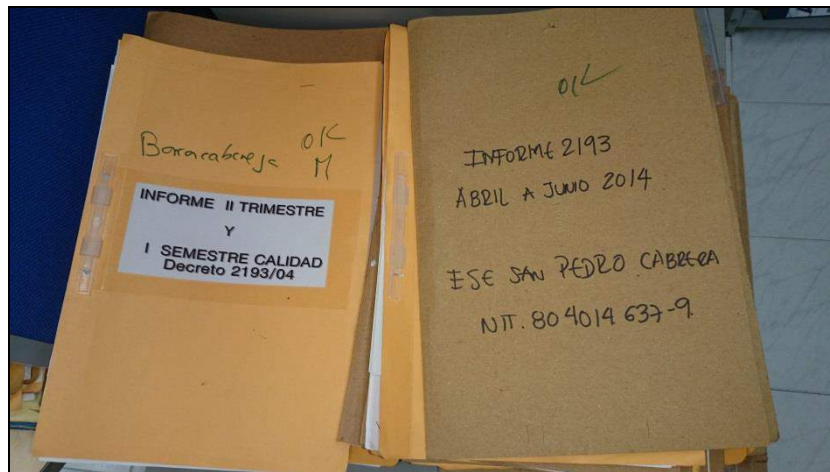 OK
M
INFORME II TRIMESTRE
Y
I SEMESTRE CALIDAD
Decreto 2193/04
OK
INFORME 2193
ABRIL A JUNIO 2014
ESE SAN PEDRO CABRERA
NIT. 804014637-9